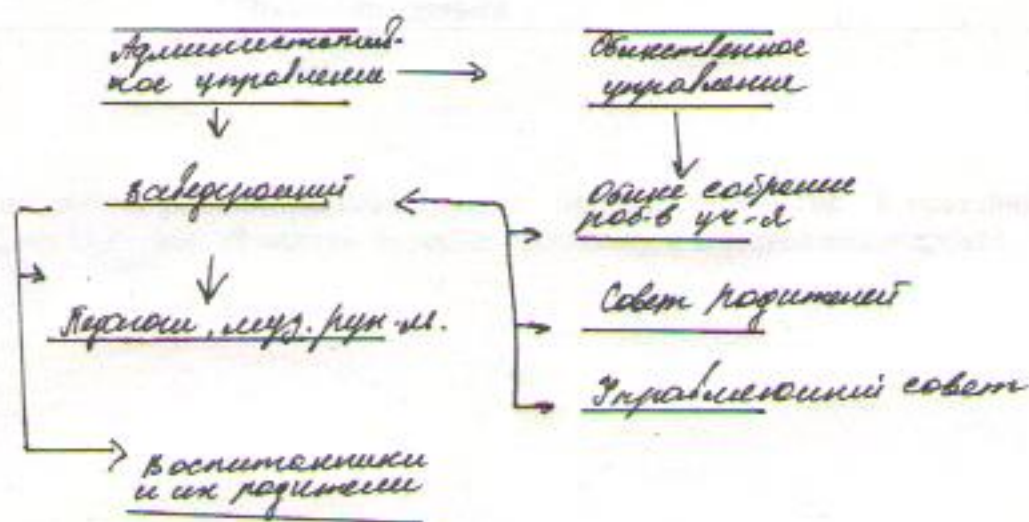 Административ-
ное управление
Общественное
управление
Заведующий
Общее собрание
раб-в уч-я
Педагоги, муз. рук-ль.
Совет родителей
Управляющий совет
Воспитанники
и их родители